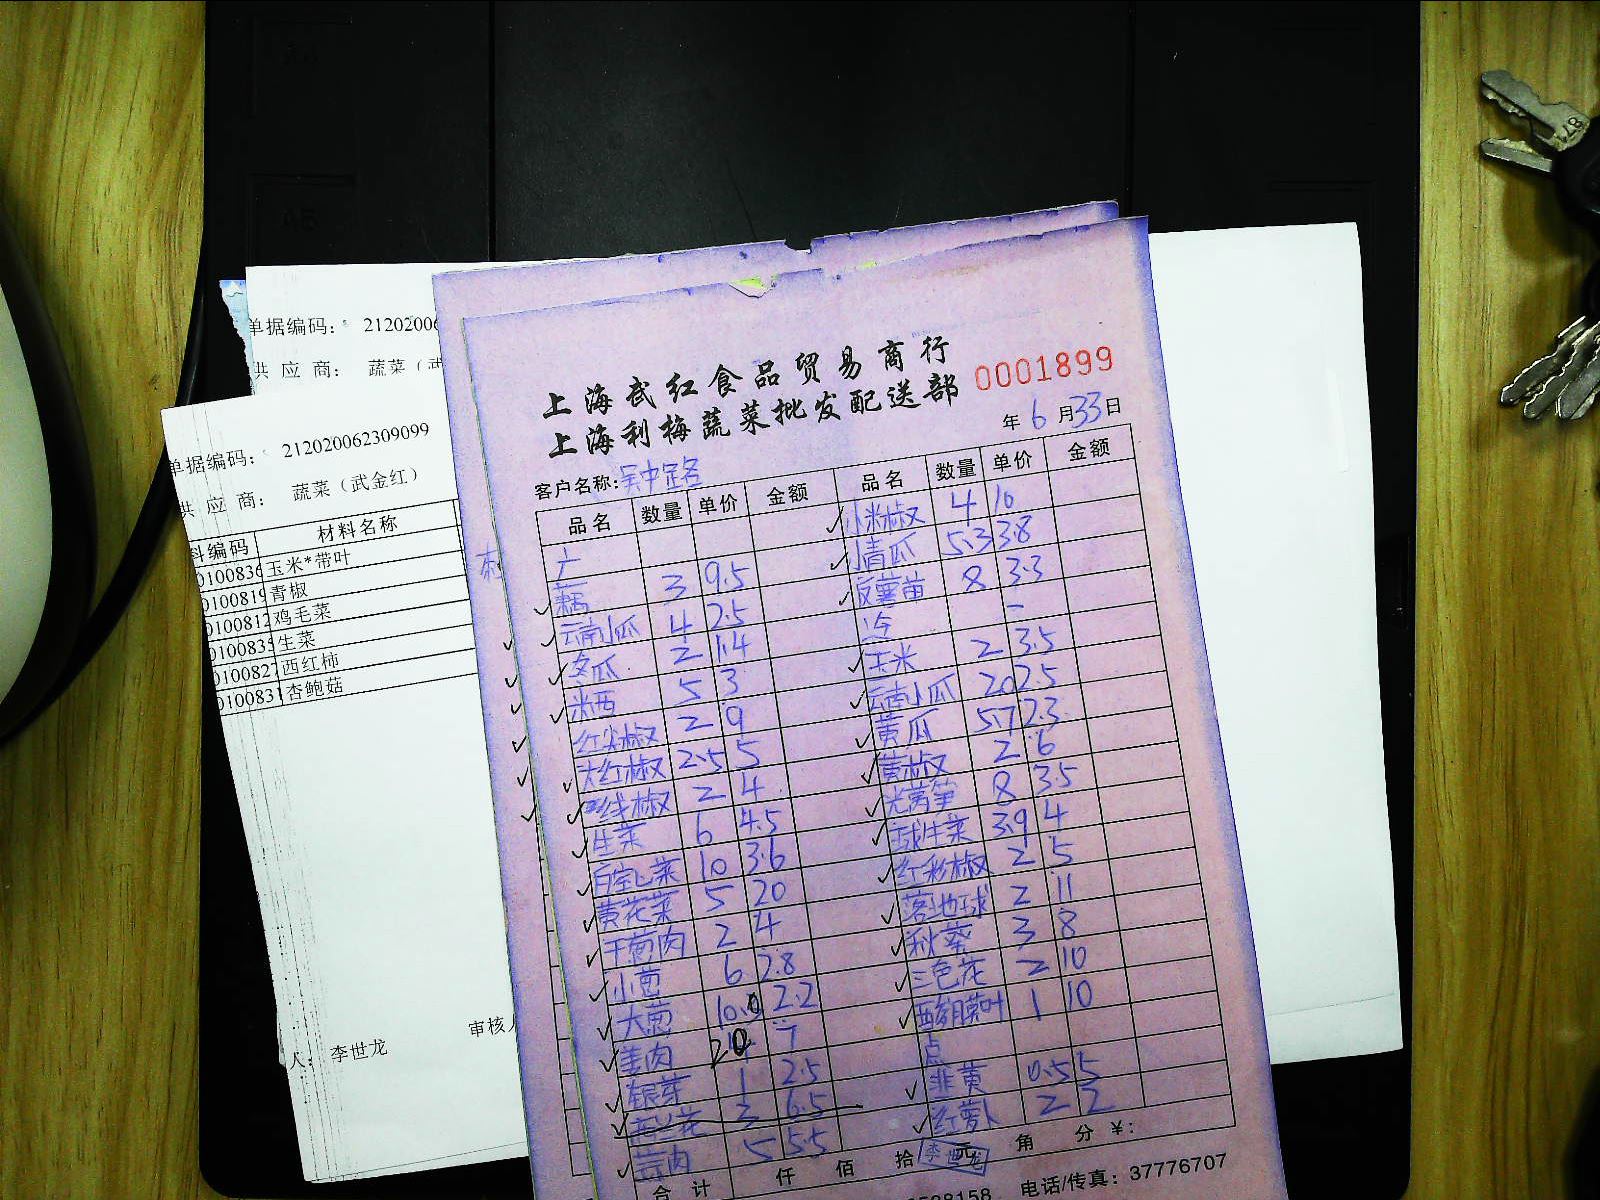 单据编码： 21202006
供 应 商： 蔬菜（武
单据编码： 212020062309099
供 应 商： 蔬菜（武金红）
料编码 材料名称
0100836 玉米*带叶
0100819 青椒
0100812 鸡毛菜
0100835 生菜
0100827 西红柿
0100831 杏鲍菇
审核人
人： 李世龙
上海武红食品贸易商行
上海利梅蔬菜批发配送部
0001899
年 6 月 33 日
客户名称：吴中路
品名 数量 单价 金额 品名 数量 单价 金额
藕 3 9.5
云南小瓜 4 2.5
冬瓜 2 1.4
米西 5 3
红尖椒 2 9
大红椒 2.5 5
线椒 2 4
生菜 6 4.5
菜 10 3.6
黄花菜 5 20
干葱肉 2 4
小葱 6 2.8
大葱 10.0 2.2
姜肉 20 7
银芽 1 2.5
6.5
蒜肉 5 5.5
小米椒 4 10
小青瓜 5.3 3.8
反薯苗 8 3.3
冷 -
玉米 2 3.5
云南小瓜 20 2.5
黄瓜 5.7 2.3
黄椒 2 6
光莴笋 8 3.5
球生菜 3.9 4
红彩椒 2 5
落地球 2 11
秋葵 3 8
三色花 2 10
叶 1 10
点
韭黄 0.5 5
红萝卜 2 2
合计 仟 佰 拾 元 角 分 ¥：
李世龙
电话/传真：37776707